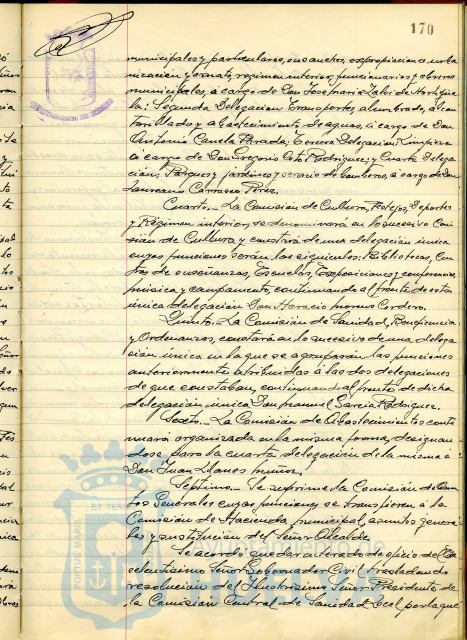 170
municipales y particulares, ensanches, expropiaciones, urba
nización y ornato, regimen interior, funcionarios y obreros
municipales, a cargo de Don José María Zalvi de
la; Segunda Delegacion, Transportes, alumbrado, alcan
tarillado y abastecimiento de aguas, a cargo de Don
Antonio Canela Parada; Tercera Delegacion, Limpieza
a cargo de Don Gregorio Coto Rodriguez; y Cuarta Delega
ción, Parques y jardines y servicio de bomberos, a cargo de Don
Laureano Carrasco Pérez.
Cuarto.- La Comisión de Cultura, Festejos, Deportes
y Régimen interior, se denominará en lo sucesivo Comi
sión de Cultura y constará de una delegación única
cuyas funciones serán las siguientes: Bibliotecas, Cen
tros de enseñanzas, Escuelas, Exposiciones, conferencias,
música y campamento, continuando al frente de esta
única delegación Don Horacio Moreno Cordero.
Quinto.- La Comisión de Sanidad, Beneficencia
y Ordenanzas, constará en lo sucesivo de una delega
ción única en la que se agruparán las funciones
anteriormente atribuidas á las dos delegaciones
de que constaban, continuando al frente de dicha
delegación única Don Manuel García Rodriguez.
Sexto.- La Comisión de Abastecimientos conti
nuará organizada en la misma forma, designan
dose para la cuarta delegación de la misma a
Don Juan Llanes Muñoz.
Septimo.- Se suprime la Comisión de Cuen
tas Generales cuyas funciones se transfieren á la
Comisión de Hacienda municipal, asuntos genera
les y sustitución del Señor Alcalde.
Se acordó quedar enterado de oficio del Ex
celentisimo Señor Gobernador Civil trasladando
resolución del Ilustrisimo Señor Presidente de
la Comisión Central de Sanidad Local por la que
PORTUS MARIS
ET TERRAE